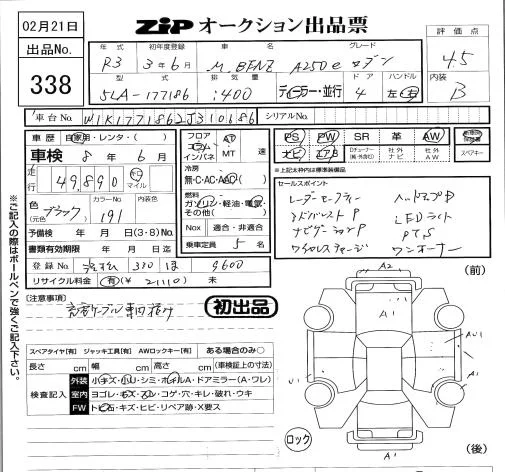 02月21日
出品No.
338
ZiPオークション出品票
評価点
4.5
内装
B
年式 初年度登録 車名 グレード
R3 3年6月 M.BENZ A250e セダン
型式 排気量 ドア ハンドル
5LA-177186 1400 ディーラー・並行 4 左・右
車台No. W1K1771862J310686 シリアルNo.
車歴 自家用・レンタ・( )
車検 8年6月
走行 49,890 km マイル
色 (元色) ブラック カラーNo. 191 内装色
予備検 年 月 日(3・8)No.
書類有効期限 年 月 日迄
登録No. 330 ほ 9600
リサイクル料金 (有)(¥ 21110 )未
フロア コラム インパネ AT MT 速
冷房 無・C・AC・AAC( )
燃料 ガソリン・軽油・電気・その他( )
Nox 適合・非適合
乗車定員 5 名
PS PW SR 革 AW
ナビ エアB Dチューナー(純・外含む) 社外ナビ 社外AW
スペアキー
※上記太枠内は標準装備品
セールスポイント
レーダーセーフティー ヘッドアップD
アドバンスト P LEDライト
ナビゲーション P PTS
ワイヤレスチャージ ワンオーナー
(注意事項)
充電ケーブル車両積み
初出品
スペアタイヤ【有】 ジャッキ工具【有】 AWロックキー【有】 ある場合のみ○
長さ cm 幅 cm 高さ cm (車検証上の寸法)
検査記入
外装 小キズ・小U・シミ・ホイルA・ドアミラー(A・ワレ)
室内 ヨゴレ・モス・スレ・コゲ・穴・キレ・破れ・ウキ
FW トビ石・キズ・ヒビ・リペア跡・X要ス
ご記入の際はボールペンで強くご記入下さい。
(前)
A2
A1
AU1
U1
A1
ロック
(後)